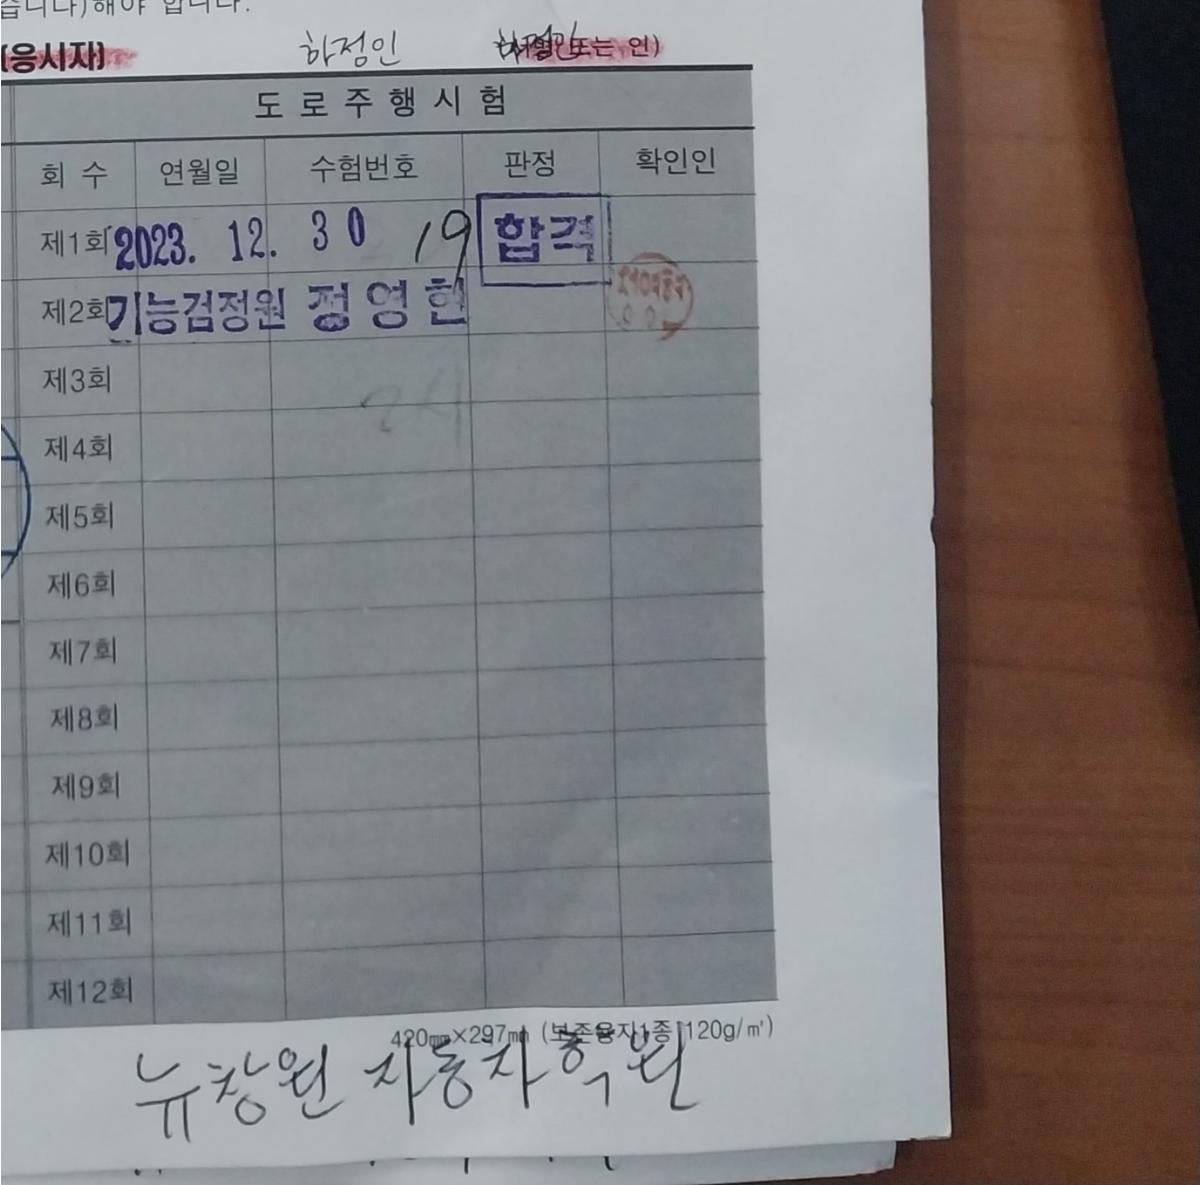 습니다)해야 합니다.
(응시자) 하정인 또는 인)
도로주행시험
회 수 연월일 수험번호 판정 확인인
제1회 2023. 12. 30 19 합격
제2회 기능검정원 정영헌
제3회
제4회
제5회
제6회
제7회
제8회
제9회
제10회
제11회
제12회
420㎜×297㎜ (보존용지1종 120g/㎡)
뉴창원 자동차학원